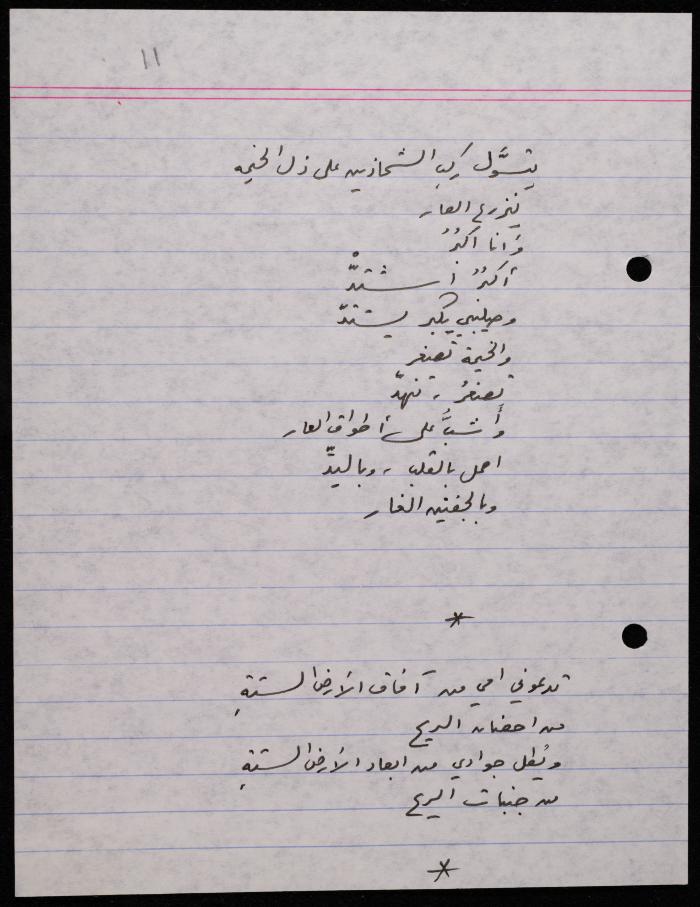 ١١
يتسوَّل ركب الشحاذين على ذل الخيمه
يزرع العار
وَأنا أكبرُ
أكبرُ أشتدّ
وصليبي يكبر يشتدّ
والخيمة تصغر
تصغرُ ، تنهدّ
وأَشبُّ على أطواق العار
احمل بالقلب ، وباليدّ
وبالجفنين الغار
*
تدعوني امي من آفاق الأرض الستة
من احضان الريح
ويُطل جوادي من ابعاد الأرض الستةِ
من جنبات الريح
*